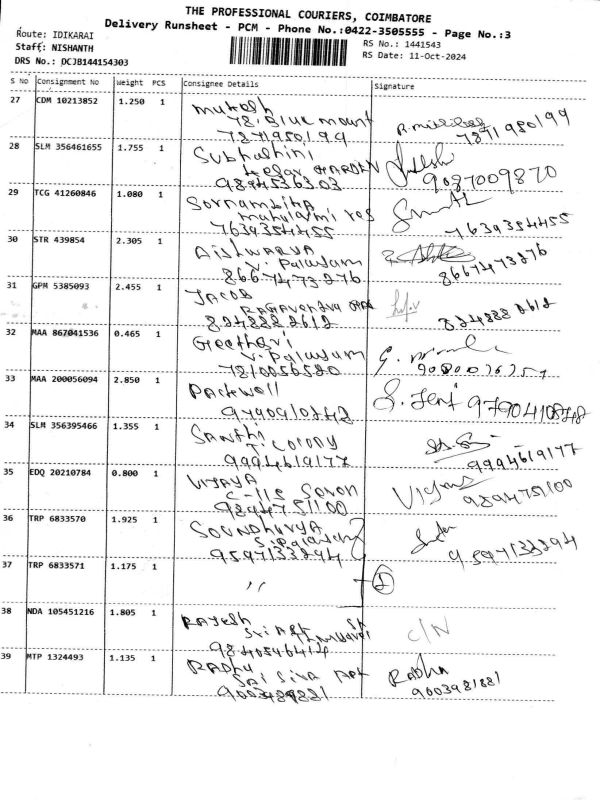 THE PROFESSIONAL COURIERS, COIMBATORE
Delivery Runsheet - PCM - Phone No.:0422-3505555 - Page No.:3
Route: IDIKARAI
Staff: NISHANTH
DRS No.: DCJB144154303
RS No.: 1441543
RS Date: 11-Oct-2024
S No Consignment No Weight PCS Consignee Details Signature
27 CDM 10213852 1.250 1 Mukesh
78, Blue mount
7871950199
7871980199
28 SLM 356461655 1.755 1 Subhashini
GARDEN
9894536303
9087009870
29 TCG 41260846 1.080 1
mahalaxmi res
7639354455
7639354455
30 STR 439854 2.305 1 AISHWARYA
V. Palayam
8667473276
8667473276
31 GPM 5385093 2.455 1 JACOB
824888 2612
824888 2612
32 MAA 867041536 0.465 1 Geetha
V. Palayam
7810056580
33 MAA 200056094 2.850 1
S. Jeni
34 SLM 356395466 1.355 1 SANTHI
T. Colony
9994619177
9994619177
35 EDQ 20210784 0.800 1 VIJAYA
C-118
9894751100
9894751100
36 TRP 6833570 1.925 1 SOUNDHURYA
S. Palayam
9597133294
9597133294
37 TRP 6833571 1.175 1 〃
38 NDA 105451216 1.805 1 RAJESH
Sri
9840546414
C/N
39 MTP 1324493 1.135 1 RADHA
SAI SIVA APT
Radha
9003981881